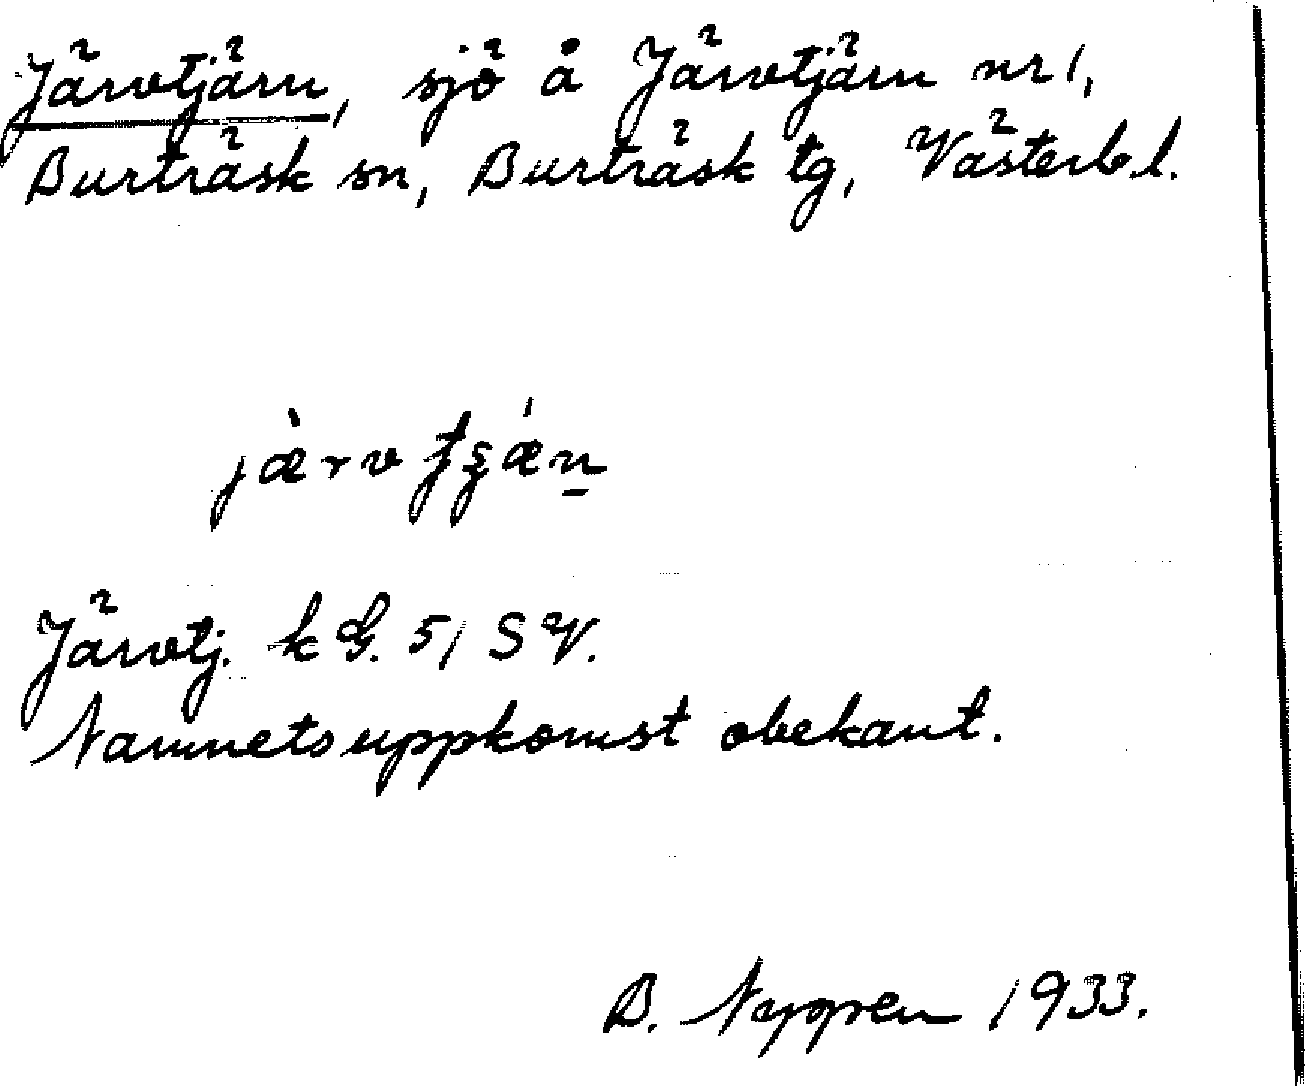 Järvtjärn, sjö å Järvtjärn nr 1,
Burträsk sn, Burträsk tg, Västerb. l.
Järvtj. k G. 51 SV.
Namnets uppkomst obekant.
B. Nygren 1933.